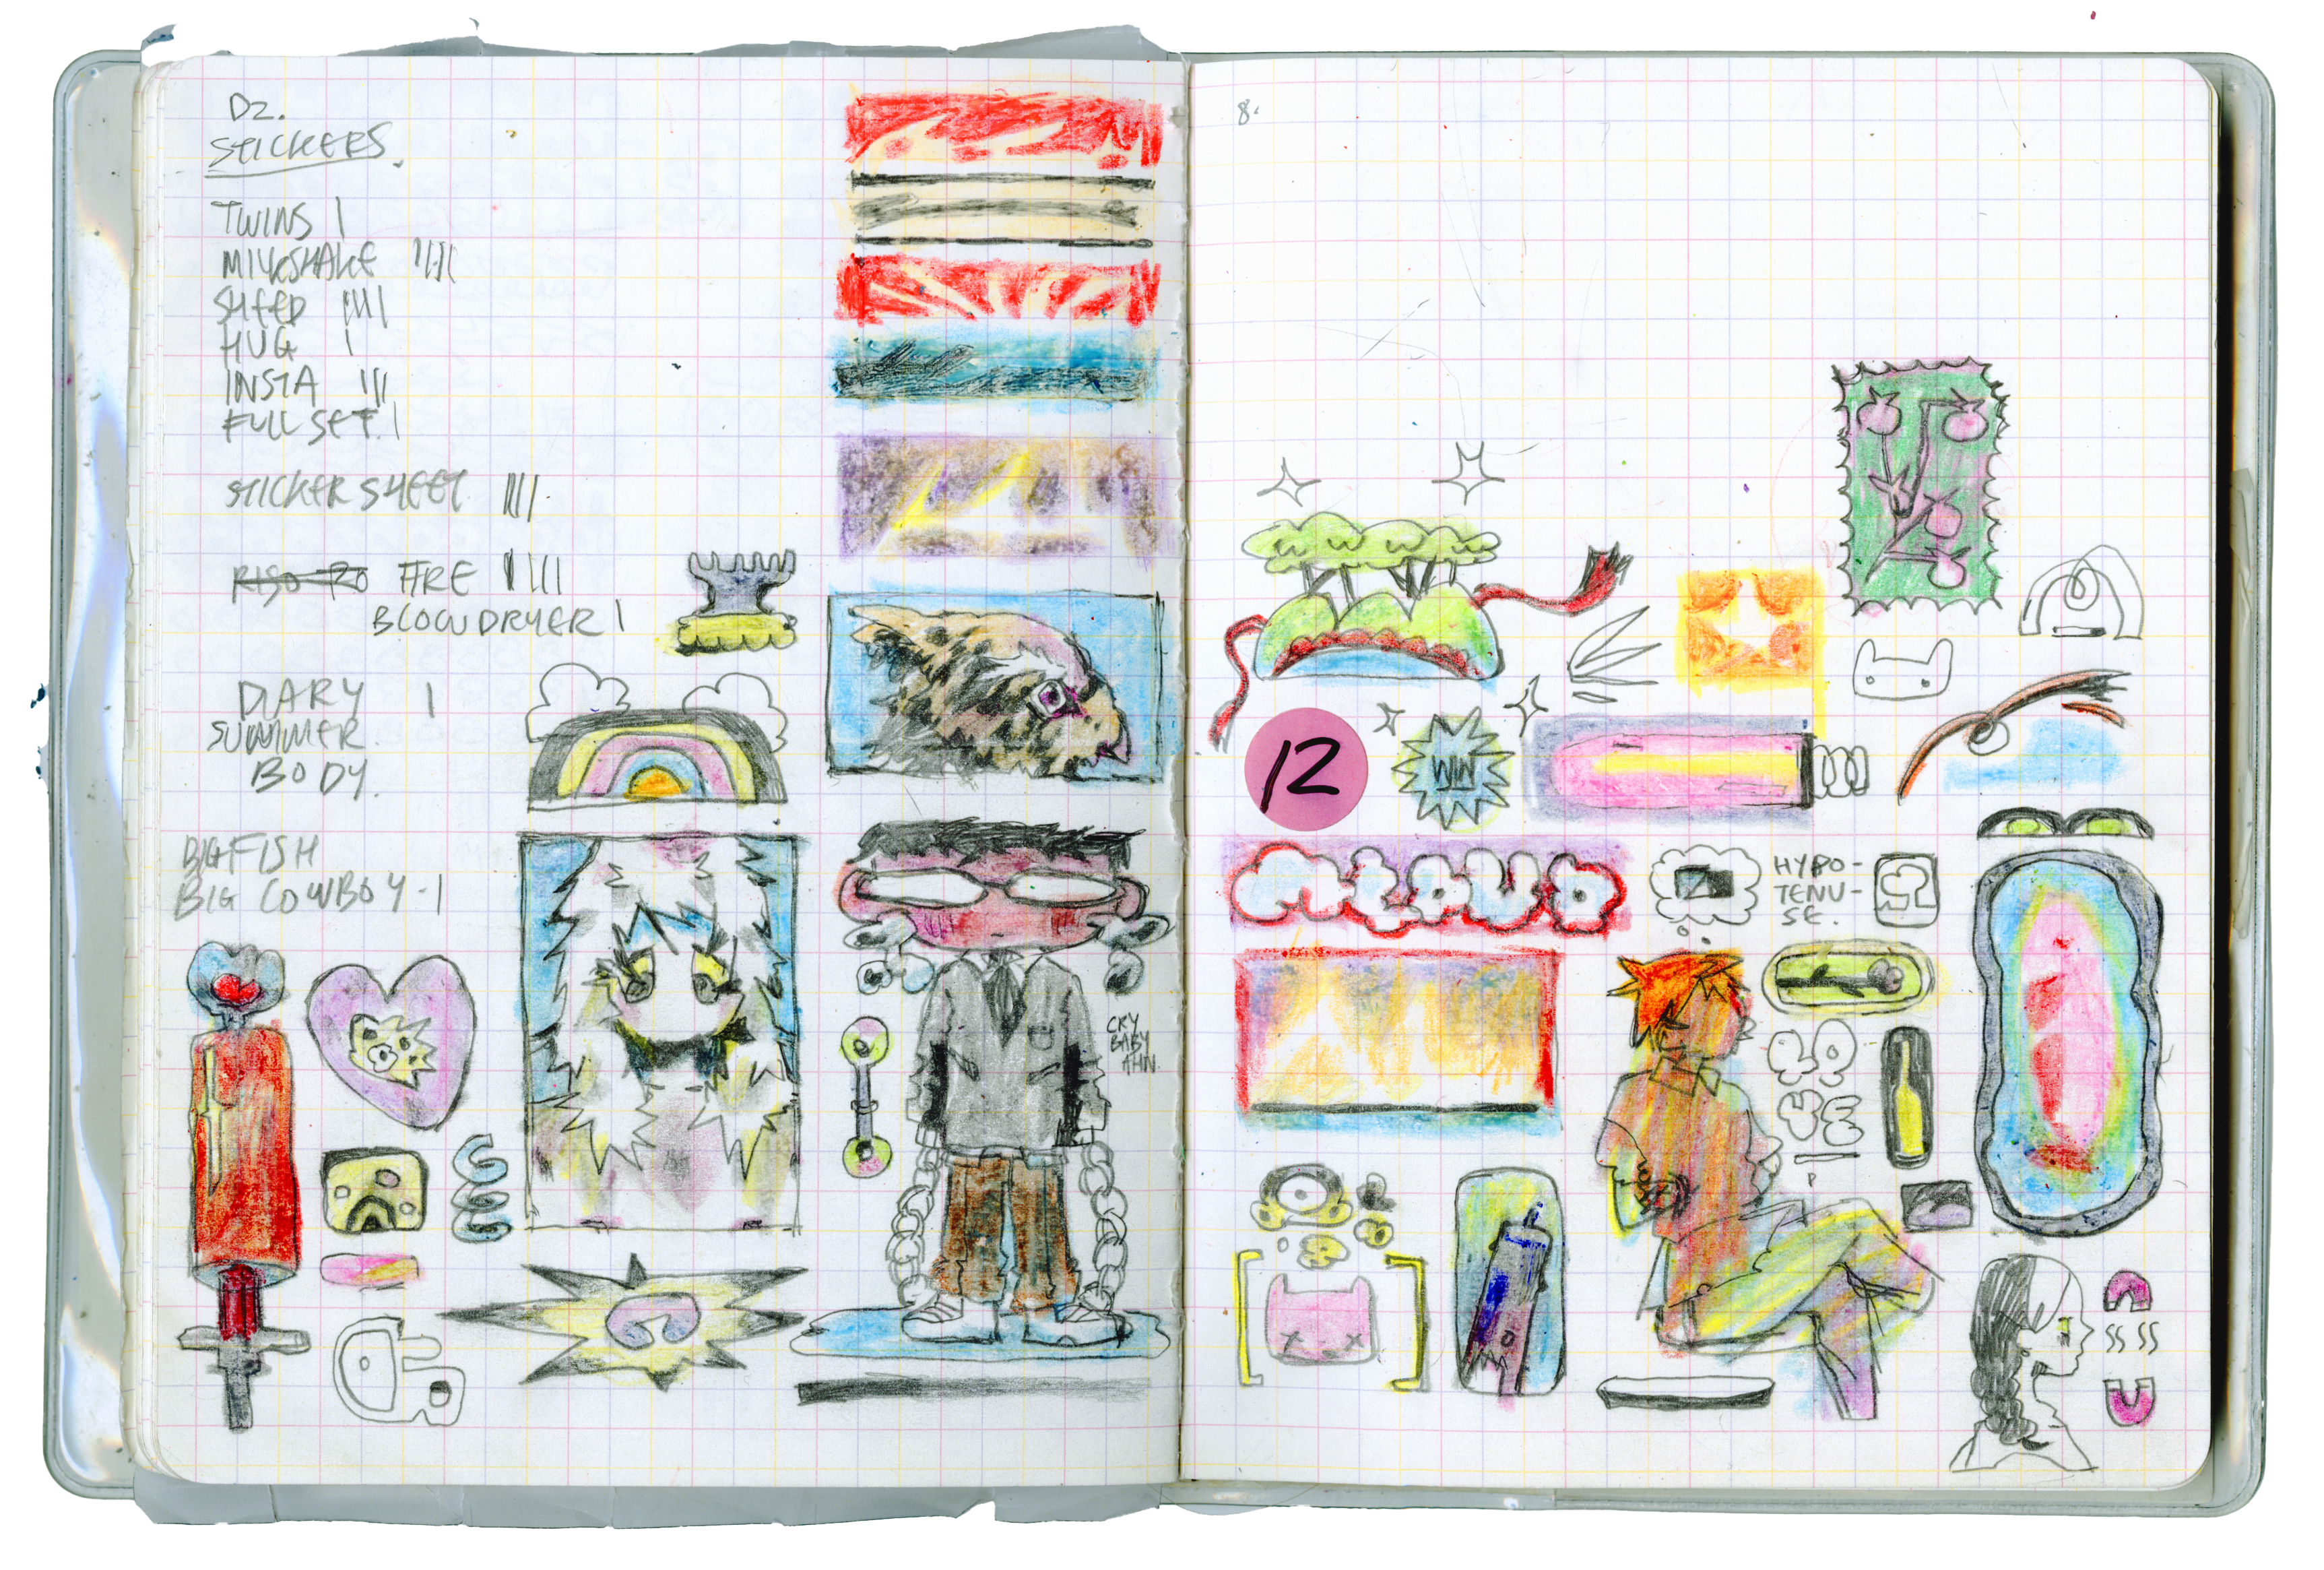 D2.
STICKERS.
TWINS |
MILKSHAKE |||||
SHEEP ||||
HUG |
INSTA |||
FULL SET. |
STICKER SHEET ||||
RISO FIRE |||||
BLOWDRYER |
DIARY |
SUMMER
BODY.
BIG FISH
BIG COWBOY - |
CRY
BABY
AHN.
8.
12
WIN
HYPO-
TENU-
SE.